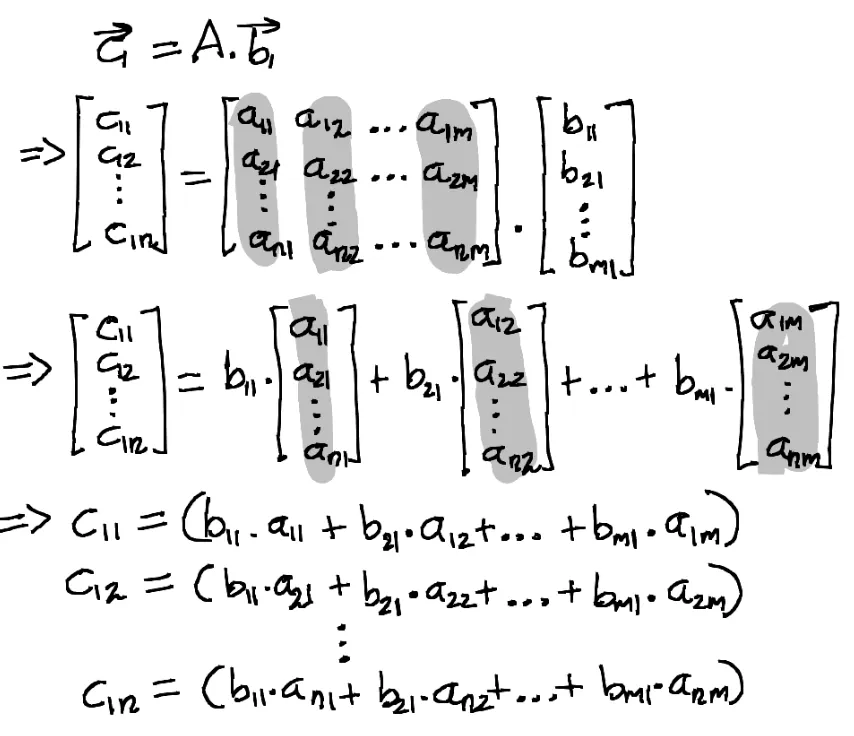 $\vec{c_1} = A.\vec{b_1}$
$\Rightarrow \begin{bmatrix} c_{11} \\ c_{12} \\ \vdots \\ c_{1n} \end{bmatrix} = \begin{bmatrix} a_{11} & a_{12} & \dots & a_{1m} \\ a_{21} & a_{22} & \dots & a_{2m} \\ \vdots & \vdots & & \\ a_{n1} & a_{n2} & \dots & a_{nm} \end{bmatrix} \cdot \begin{bmatrix} b_{11} \\ b_{21} \\ \vdots \\ b_{m1} \end{bmatrix}$
$\Rightarrow \begin{bmatrix} c_{11} \\ c_{12} \\ \vdots \\ c_{1n} \end{bmatrix} = b_{11} \cdot \begin{bmatrix} a_{11} \\ a_{21} \\ \vdots \\ a_{n1} \end{bmatrix} + b_{21} \cdot \begin{bmatrix} a_{12} \\ a_{22} \\ \vdots \\ a_{n2} \end{bmatrix} + \dots + b_{m1} \cdot \begin{bmatrix} a_{1m} \\ a_{2m} \\ \vdots \\ a_{nm} \end{bmatrix}$
$\Rightarrow c_{11} = (b_{11} \cdot a_{11} + b_{21} \cdot a_{12} + \dots + b_{m1} \cdot a_{1m})$
$c_{12} = (b_{11} \cdot a_{21} + b_{21} \cdot a_{22} + \dots + b_{m1} \cdot a_{2m})$
$\vdots$
$c_{1n} = (b_{11} \cdot a_{n1} + b_{21} \cdot a_{n2} + \dots + b_{m1} \cdot a_{nm})$